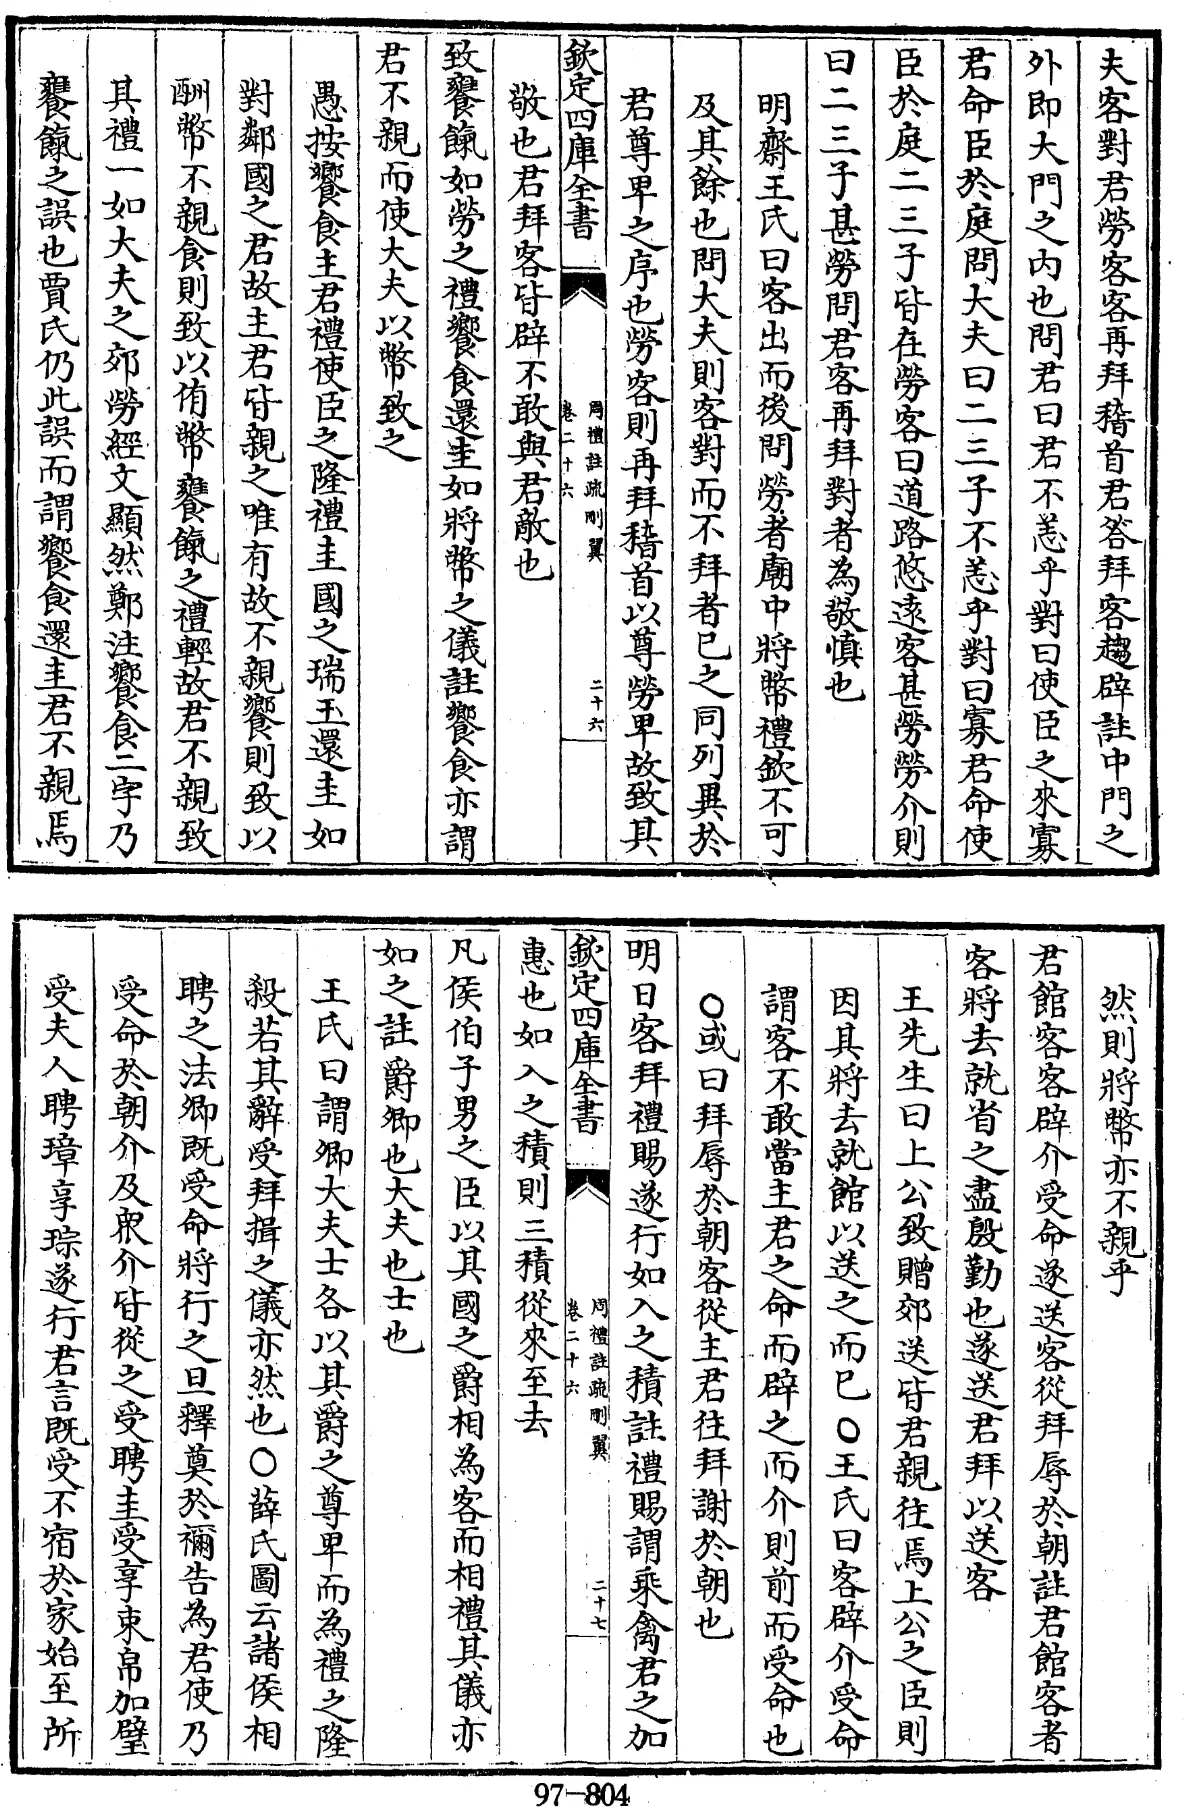 夫客對君勞客客再拜稽首君答拜客趨辟註中門之
外即大門之内也問君曰君不恙乎對曰使臣之來寡
君命臣於庭問大夫曰二三子不恙乎對曰寡君命使
臣於庭二三子皆在勞客曰道路悠遠客甚勞勞介則
曰二三子甚勞問君客再拜對者為敬慎也
明齋王氏曰客出而後問勞者廟中將幣禮欽不可
及其餘也問大夫則客對而不拜者巳之同列異於
君尊卑之序也勞客則再拜稽首以尊勞卑故致其
欽定四庫全書
周禮註疏刪翼
卷二十六
二十六
敬也君拜客皆辟不敢與君敵也
致饔餼如勞之禮饗食還圭如將幣之儀註饗食亦謂
君不親而使大夫以幣致之
愚按饗食主君禮使臣之隆禮圭國之瑞玉還圭如
對鄰國之君故主君皆親之唯有故不親饗則致以
酬幣不親食則致以侑幣饔餼之禮輕故君不親致
其禮一如大夫之郊勞經文顯然鄭注饗食二字乃
饔餼之誤也賈氏仍此誤而謂饗食還圭君不親焉
然則將幣亦不親乎
君館客客辟介受命遂送客從拜辱於朝註君館客者
客將去就省之盡殷勤也遂送君拜以送客
王先生曰上公致贈郊送皆君親往焉上公之臣則
因其將去就館以送之而巳○王氏曰客辟介受命
謂客不敢當主君之命而辟之而介則前而受命也
○或曰拜辱於朝客從主君往拜謝於朝也
明日客拜禮賜遂行如入之積註禮賜謂乘禽君之加
欽定四庫全書
周禮註疏刪翼
卷二十六
二十七
惠也如入之積則三積從來至去
凡侯伯子男之臣以其國之爵相為客而相禮其儀亦
如之註爵卿也大夫也士也
王氏曰謂卿大夫士各以其爵之尊卑而為禮之隆
殺若其辭受拜揖之儀亦然也○薛氏圖云諸侯相
聘之法卿既受命將行之旦釋奠於禰告為君使乃
受命於朝介及衆介皆從之受聘圭受享束帛加璧
受夫人聘璋享琮遂行君言既受不宿於家始至所
97-804